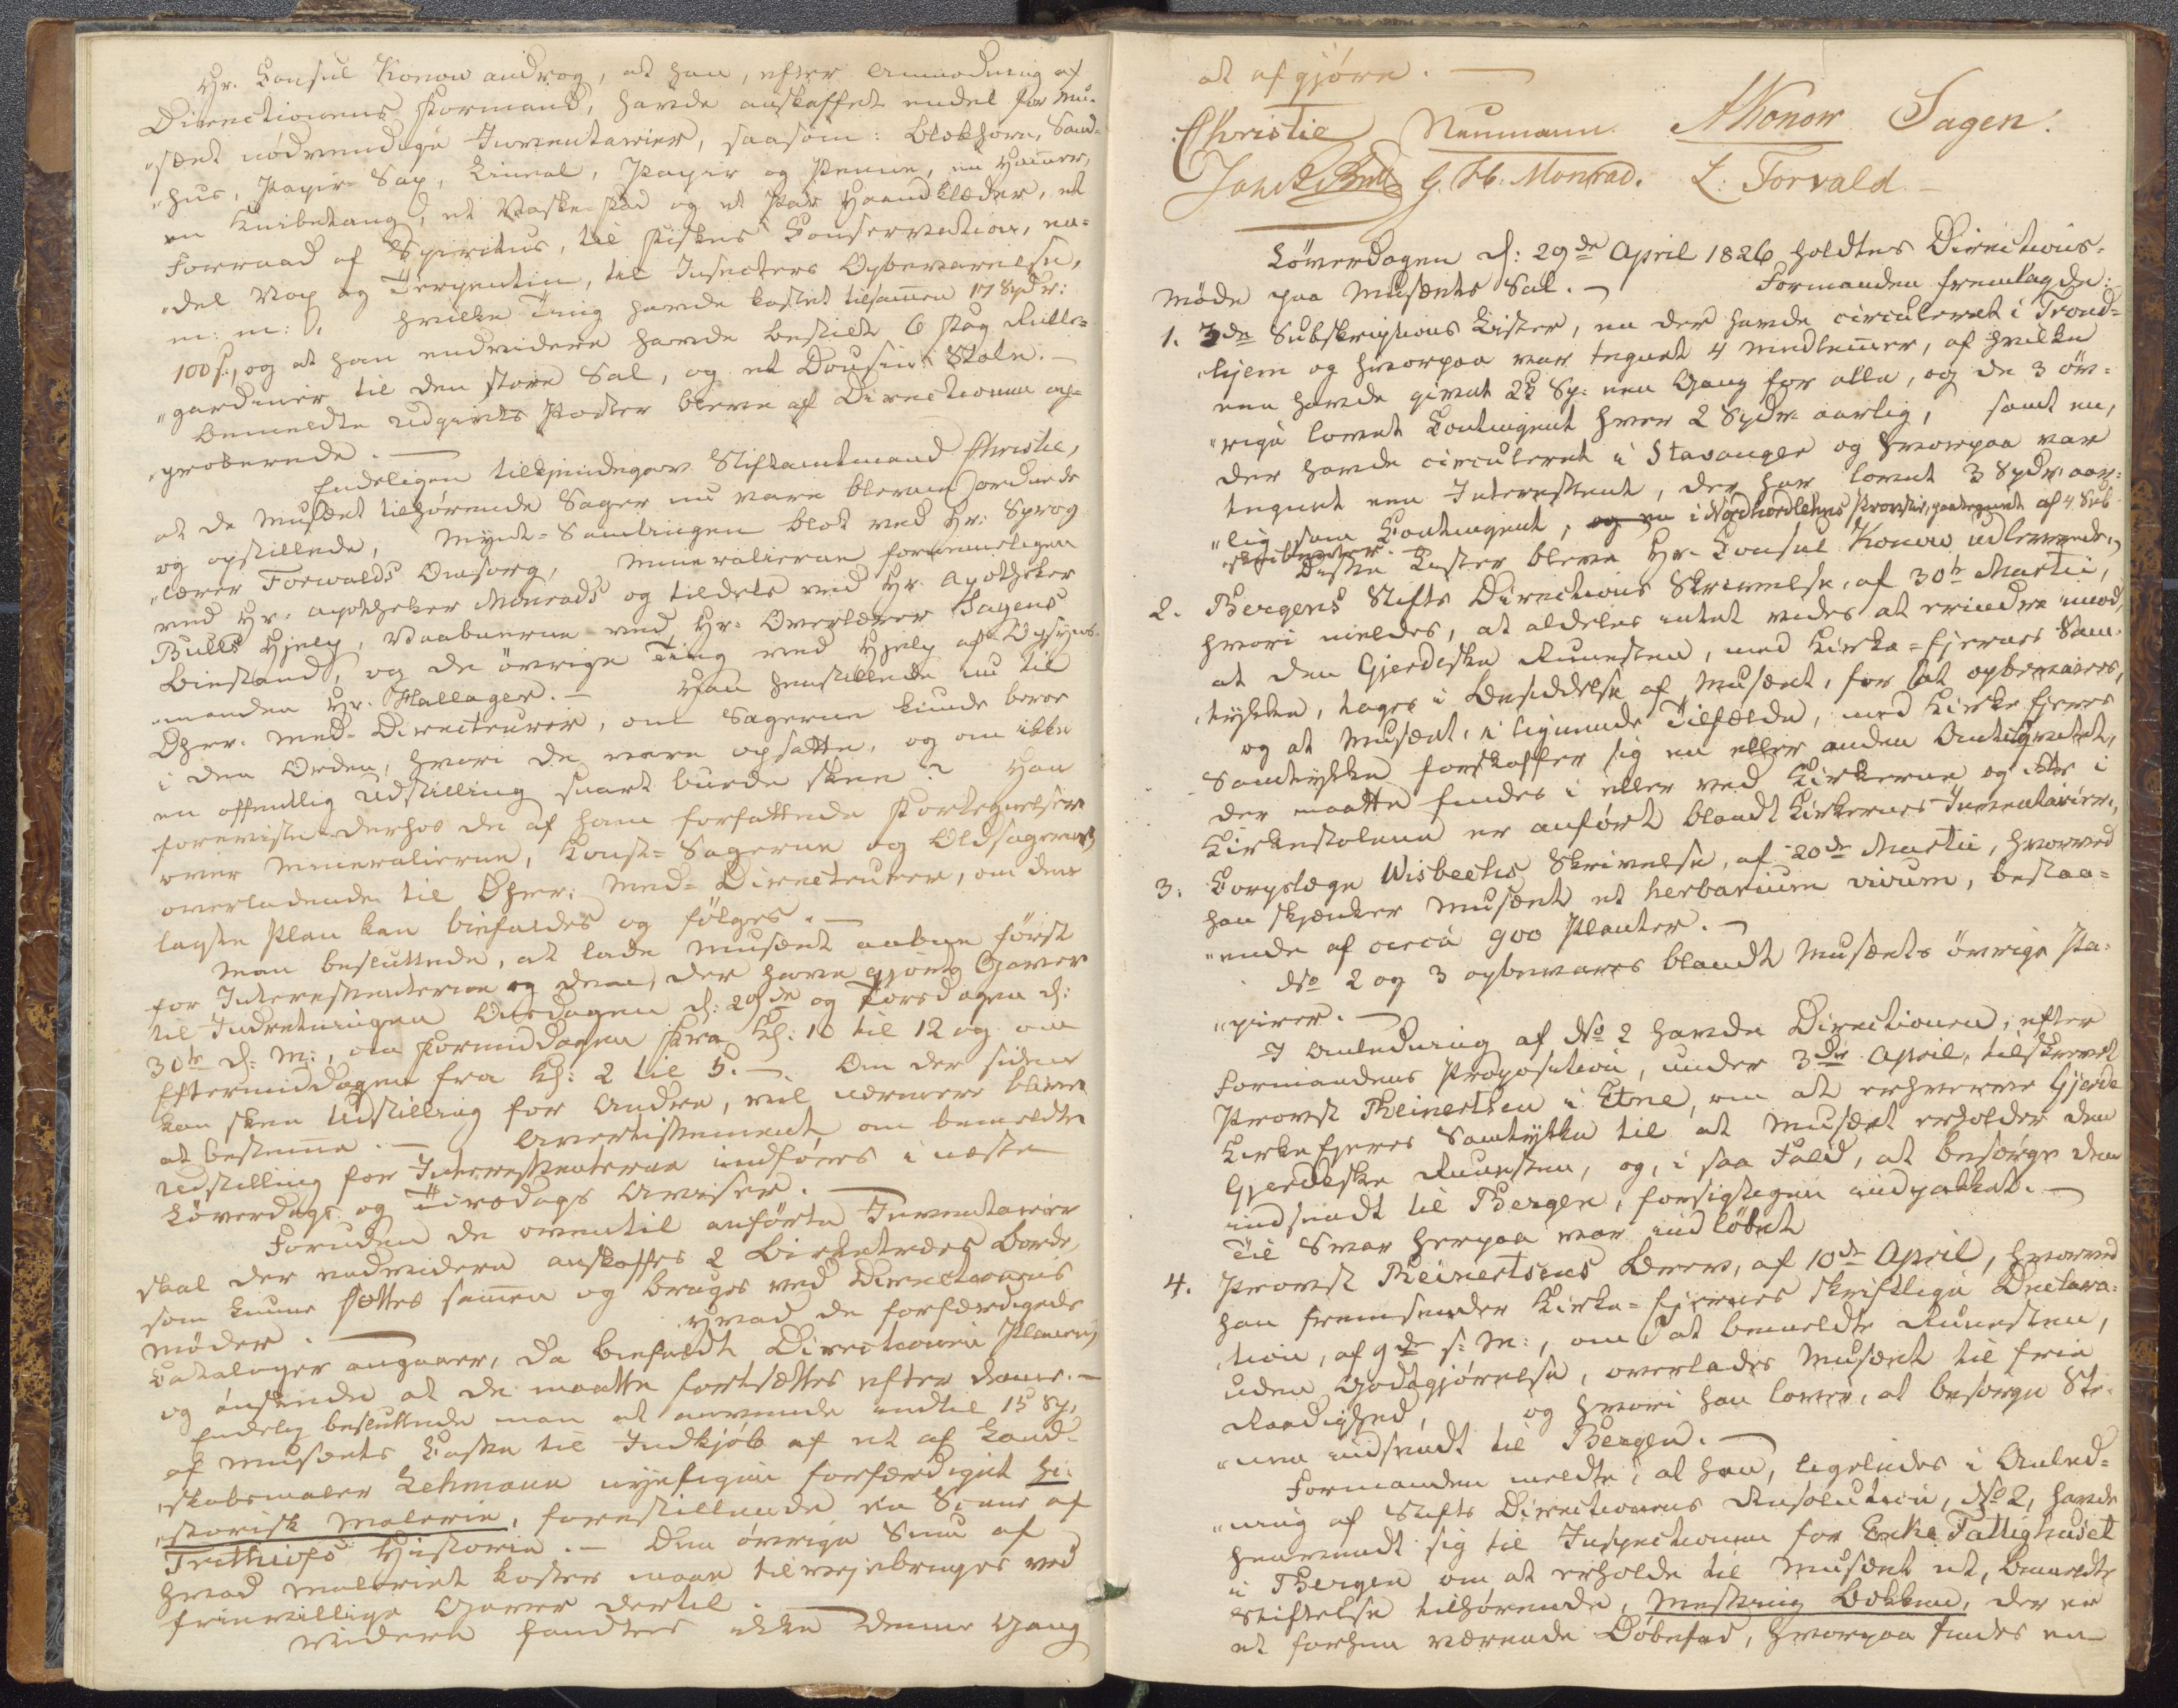 Hr. Consul Konow androg, at han, efter Anmodning af
Directionens Formand, havde anskaffet endel for Mu-
„sæet nødvendige Inventarier, saasom: Blækhorn, Sand-
„huus, Papir-Sax, Lineal, Papir og Penne, en Hammer,
en Knibetang, et Vaske-Fad og et Par Haandklæder, et
Forraad af Spiritus, til Fiskes Conservation, en-
„del Vox og Terpentin, til Insecters Opbevarelse,
m: m:, hvilke Ting havde kostet tilsammen 17 Spdr:
100 s., og at han endvidere havde bestilt 6 Fag Rulle-
„gardiner til den store Sal, og et Dousin Stole.—
Bemeldte Udgivts Poster bleve af Directionen ap-
„proberede.—
Endeligen tilkjendegav Stiftamtmand Christie,
at de Musæet tilhørende Sager nu vare blevne ordnede
og opstillede, Mynt-Samlingen blot ved Hr: Sprog-
„lærer Forvalds Omsorg, Mineralierne fornemmeligen
ved Hr: Apotheker Monrads og tildels ved Hr. Apotheker
Bulls Hjelp, Vaabnerne ved Hr: Overlærer Sagens
Biestand, og de øvrige Ting ved Hjelp af Opsyns-
„manden Hr. Hallager.— Han henstillede nu til
DHrr. Med-Directeurer, om Sagerne kunde beroe
i den Orden, hvori de vare opsatte, og om ikke
en offentlig Udstilling snart burde skee? Han
foreviste derhos de af ham forfattede Fortegnelser
over Mineralierne, Konst-Sagerne og Oldsagerne,
overladende til DHrr: Med-Directeurer, om den
lagte Plan kan biefaldes og følges.—
Man besluttede, at lade Musæet aabne først
for Interessenterne og dem, der have gjort Gaver
til Indretningen Onsdagen d: 29de og Torsdagen d:
30te d: M:, om Formiddagen fra Kl: 10 til 12 og om
Eftermiddagen fra Kl: 2 til 5.— Om der siden
kan skee Udstilling for Andre, vil nærmere blive
at bestemme.— Avertissement om bemeldte
Udstilling for Interessenterne indføres i næste
Løverdags og Tirsdags Aviser.—
Foruden de oventil anførte Inventarier
skal der endvidere anskaffes 2 Birketræes Borde,
som kunne sættes sammen og bruges ved Directionens
Møder.— Hvad de forfærdigede
Cataloger angaaer, da biefaldt Directionen Planen,
og ønskede at de maatte fortsættes efter denne.—
Endelig besluttede man at anvende indtil 15 Sp,
af Musæets Casse til Indkjøb af et af Land-
„skabsmaler Lehmann nyeligen forfærdiget hi-
„storisk Malerie, forestillende en Scene af
Frithiofs Historie.— Den øvrige Sum af
hvad Maleriet koster maae tilvejebringes ved
frievillige Gaver dertil.
Videre fandtes ikke denne Gang
at afgjøre.—
Christie Neumann AKonow Sagen.
Jens Bull G. H. Monrad. L: Forvald.—
Løverdagen d: 29de April 1826 holdtes Directions-
Møde paa Musæets Sal.— Formanden fremlagde:
1. 3de Subskriptions Lister, en der havde circuleret i Trond-
„hjem og hvorpaa var tegnet 4 Medlemmer, af hvilke
een havde givet 25 Sp: een Gang for alle, og de 3 øv-
„rige lovet Contingent hver 2 Spdr. aarlig, samt en,
der havde circuleret i Stavanger og hvorpaa var
tegnet een Interessent, der har lovet 3 Spdr. aar-
„lig som Contingent, og en i Nordhordlehns Provstie, paategnet af 4 Sub-
„skribenter. Disse Lister bleve Hr. Consul Konow udleverede.
2. Bergens Stifts Directions Skrivelse, af 30te Martii,
hvori meldes, at aldeles intet vides at erindre imod,
at den Gjerdeske Runesten, med Kirke-Ejernes Sam-
„tykke, tages i Besiddelse af Musæet, for at opbevares,
og at Musæet, i lignende Tilfælde, med Kirke Ejeres
Samtykke forskaffer sig en eller anden Antiqvitet,
der maatte findes i eller ved Kirkerne og ikke i
Kirkestolene er anført blandt Kirkernes Inventarier,
3. Corpslæge Wisbechs Skrivelse, af 20de Martii, hvorved
han skjenker Musæet et herbarium vivum, bestaa-
„ende af circa 900 Planter.—
No 2 og 3 opbevares blandt Musæets øvrige Pa-
„pirer.—
I Anledning af No 2 havde Directionen, efter
Formandens Proposition, under 3die April, tilskrevet
Provst Reinertsen i Etne, om at erhverve Gjerde
Kirkeejeres Samtykke til at Musæet erholder den
Gjerdeske Runesten, og, i saa Fald, at besørge den
indsendt til Bergen, forsigtigen indpakket.—
Til Svar herpaa var indløbet
4. Provst Reinertsens Brev, af 10de April, hvorved
han fremsender Kirke-Ejernes skriftlige Declara-
„tion, af 9de s: M:, om at bemeldte Runesten,
uden Godtgjørelse, overlades Musæet til frie
Raadighed, og hvori han lover, at besørge Ste-
„nen indsendt til Bergen.—
Formanden meldte, at han, ligeledes i Anled-
„ning af Stifts Directionens Resolution, No 2, havde
henvendt sig til Inspectionen for Enke Fattighuset
i Bergen om at erholde til Musæet et, bemeldte
Stiftelse tilhørende, Messing Bækken, der er
et forhen værende Døbefad, hvorpaa findes en